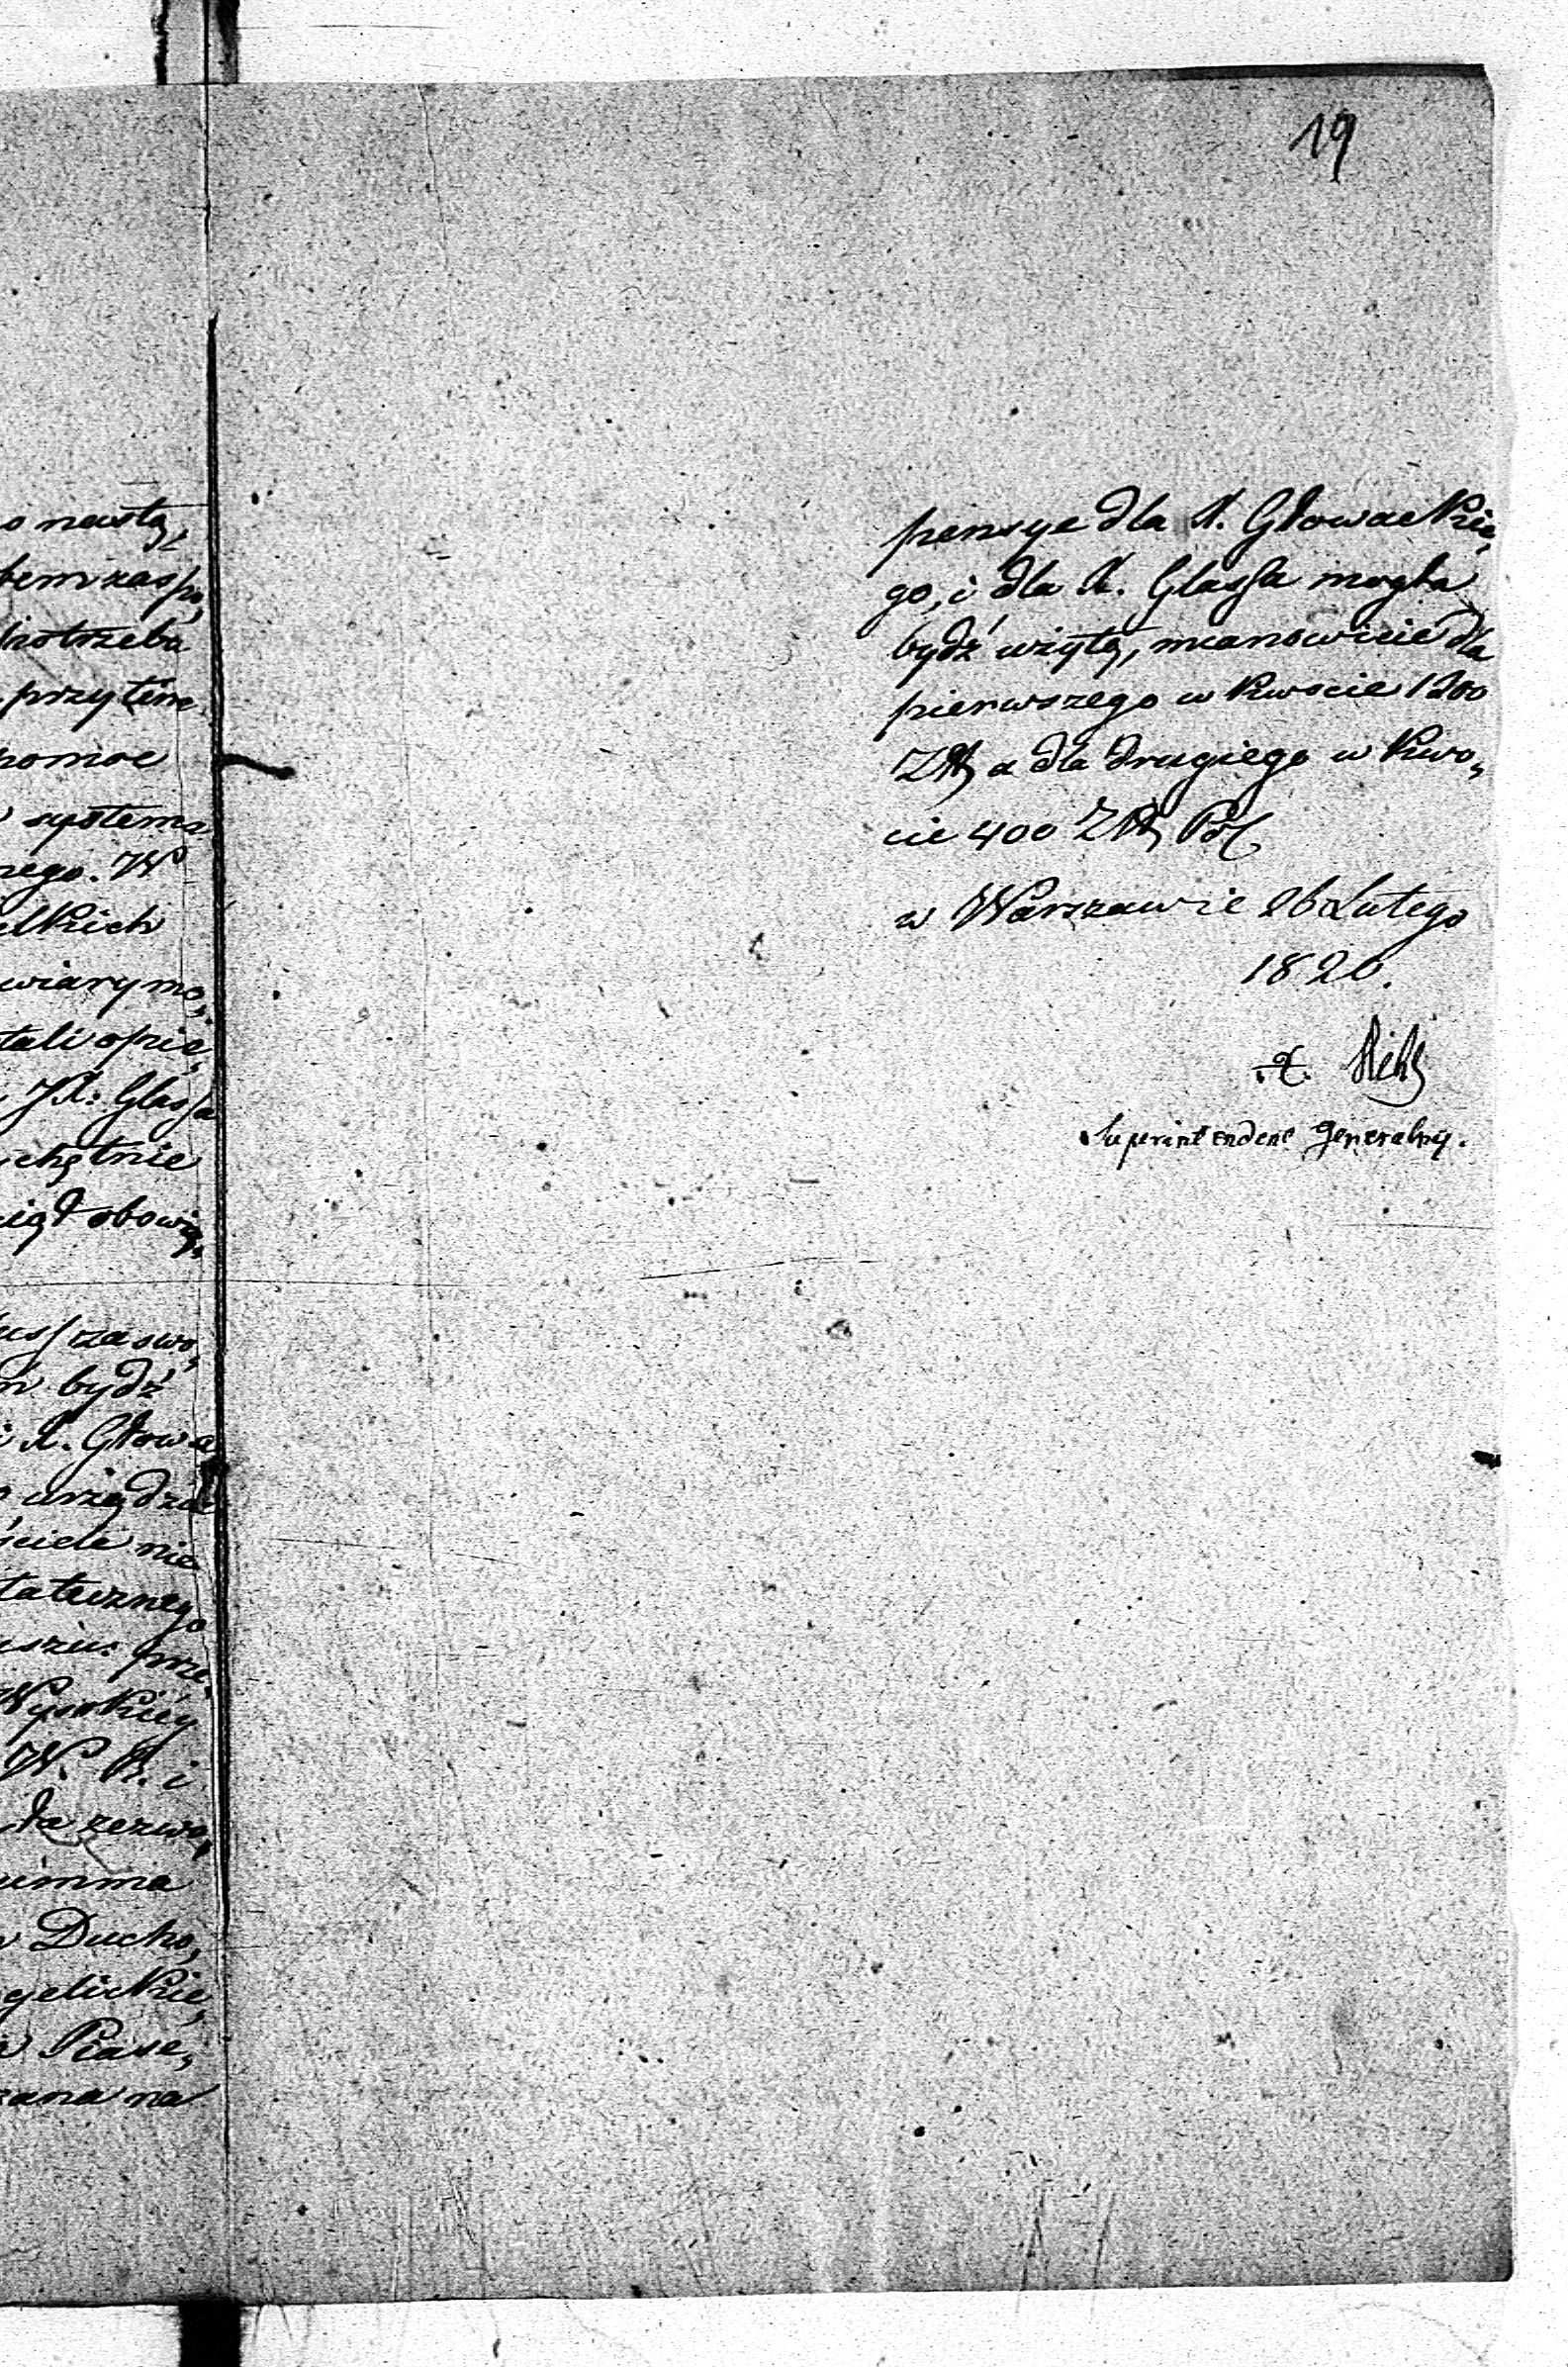 19
o nastą,
bem zaspo,
potrzeba
przytém
pomoc
systema
nego. W
elkich
wiary mo,
tali opie,
JX. Glassa
chętnie
ciął obowią,
uss za swo,
m bydź
i X. Głowa
urządza
ściele nie
tatecznego
uszu. prze,
Wysokiéy
W. R. i
ła zezwo,
summa
w Ducho,
gelickie,
w Piase,
zana na
pensye dla X. Głowackie,
go, i dla X. Glassa mogła
bydź użytą, mianowicie dla
pierwszego w kwocie 1200
Złł a dla drugiego w kwo,
cie 400 Złł Pol
w Warszawie 26 Lutego
1820.
X.
Superintendent Generalny.